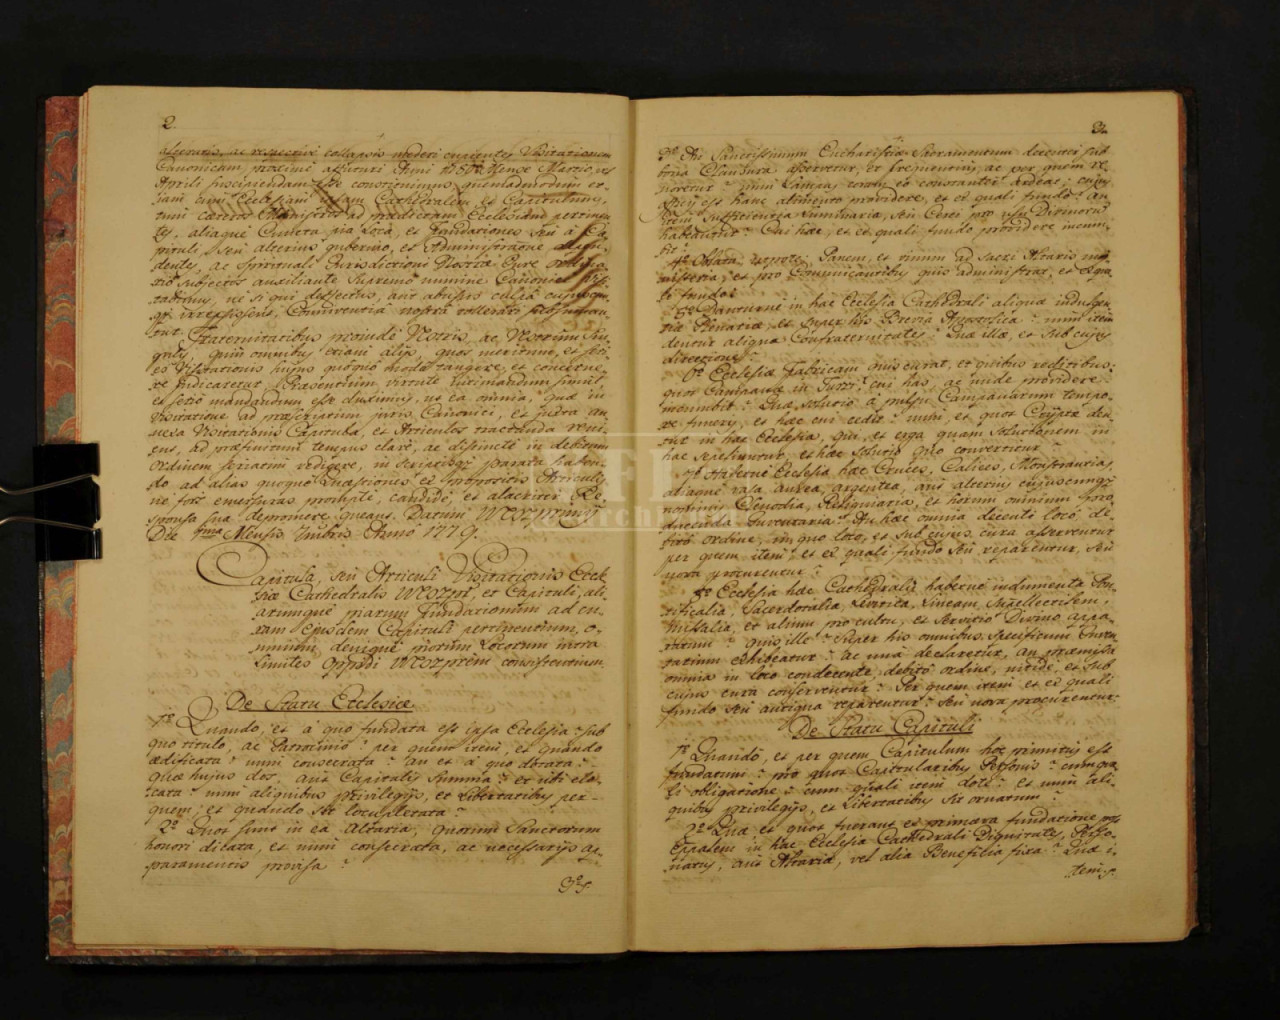 2.
alteratis, ac respective collapsis mederi cupientes Visitationem
Canonicam, proximi affuturi Anni 1780 Mense Martio, vel
Aprili suscipiendam esse constituimus quemadmodum et-
iam cum Ecclesiam ipsam Cathedralem, et Capitulum,
tum caeteros Ministros ad praedictam Ecclesiam pertinen-
tes, aliaque Cuncta pia Loca, et Fundationes seu à Ca-
pituli, seu alterius guberno, et Administratione
dentes, ac Spirituali Jurisdictioni Nostrae Jure
rio subjectos auxiliante Supremo numine Canonice
tabimus, ne si qui deffectus, aut abusus culpa cujuscun-
que irrepsissent, Conniventia nostra tollerati
tur. Fraternitatibus proinde Vestris, ac Vestrum Sin-
gulis, quin omnibus etiam alijs, quos meritum, et seri-
es Visitationis hujus quoquo modo tangere, et concerne-
re judicaretur, Praesentium virtute intimandum simul,
et serio mandandum esse duximus, ut ea omnia, quae in
Visitatione ad praescriptum juris Canonici, et juxta an-
nexa Visitationis Capitula, et Articulos tractanda veni-
ent, ad praefinitum tempus clarè, ac distincte in debitum
Ordinem seriatim redigere, in scriptisque parata haben-
do ad alias quoque quaestiones ex propositis Articulis
ne fors emersuras promptè, candidè, et alacriter Re-
sponsa sua depromere queant. Datum Weszprimij
Die 1ma Mensis Xmbris Anno 1779.
Capitula, seu Articuli Visitationis Eccle-
siae Cathedralis Weszprm, et Capituli, ali-
arumque piarum Fundationum ad cu-
ram Ejusdem Capituli pertinentium, o-
mnium denique piorum Locorum intra
Limites Oppidi Weszprem consistentium
De Statu Ecclesiae
1o Quando, et à quo fundata est ipsa Ecclesia? sub
quo titulo, ac Patrocinio? per quem item, et quando
aedificata? num consecrata? an et à quo dotata?
quae hujus dos, aut Capitalis Summa? et ubi elo-
cata? num aliquibus privilegijs, et Libertatibus per-
quem, et quando sit locupletata?
2o Quot sunt in ea Altaria, quorum Sanctorum
honori dicata, et num consecrata, ac necessarijs ap-
paramentis provisa?
3o
3.
3o An Sanctissimum Eucharistiae Sacramentum decenter sub
tuta Clausura asservetur, et frequentius, ac per quem re-
novetur? num Lampas coram eo constanter ardeat, cujus-
piam est hanc alimento providere, et ex quali fundo? an
item sufficientia Luminaria, seu Cerei pro usu Divinorum
habeantur? Cui hac, et ex quali fundo providere incum-
bit?
4o Oblata, nempe Panem, et vinum ad sacri Altaris mi-
nisteria, et pro Comunicantibus quis administrat, et ex qua-
li fundo?
5o Danturne in hac Ecclesia Cathedrali aliqua indulgen-
tiae Plenariae, et super his Brevia Apostolica? num item
dentur aliqua Confraternitates? Quae illae, et sub cujus
directione?
6o Ecclesiae Fabricam quis curat, et quibus reditibus;
quot Campanae in Turri? cui has, ac unde providere
incumbit? Quae solutio à pulsu Campanarum tempo-
re funeris, et haec cui cedit? num, et quot Cryptae den-
tur in hac Ecclesia, qui, et erga quam solutionem in
hac sepeliuntur, et haec Solutio quo convertitur?
7o Haberne Ecclesia haec Cruces, Calices, Monstrantias,
aliaque vasa aurea, argentea, aut alterius cujuscunque
nominis Clenodia, Reliquiaria, et horum omnium pro-
ducenda Inventaria? An haec omnia decenti loco, de-
bito ordine, in quo loco, et sub cujus cura asserventur
per quem item, et ex quali fundo seu reparentur, seu
nova procurentur?
8o Ecclesia haec Cathedralis haberne indumenta Pon-
tificalia, Sacerdotalia, Levitica, Lineam Supellectilem,
Missalia, et alium pro cultu, et Servitio Divino appa-
ratum? quis ille? Super his omnibus Specificum Inven-
tarium exhibeatur? ac una declaretur, an praemissa
omnia in loco condecente, debito ordine, nitide, et sub
cujus cura conserventur? Per quem item et ex quali
fundo seu antiqua reparentur? seu nova procurentur.
De Statu Capituli
1o Quando, et per quem Capitulum hoc primitus est
fundatum? pro quot Capitularibus Personis? cum qua-
li obligatione? cum quali item dote? et num ali-
quibus privilegijs, et Libertatibus sit ornatum?
2o Quae, et quot fuerunt ex primaeva fundatione post
Eppalem in hac Ecclesia Cathedrali Dignitates,
natus, aut Altaria, vel alia Beneficia fixa? Quae i-
tem